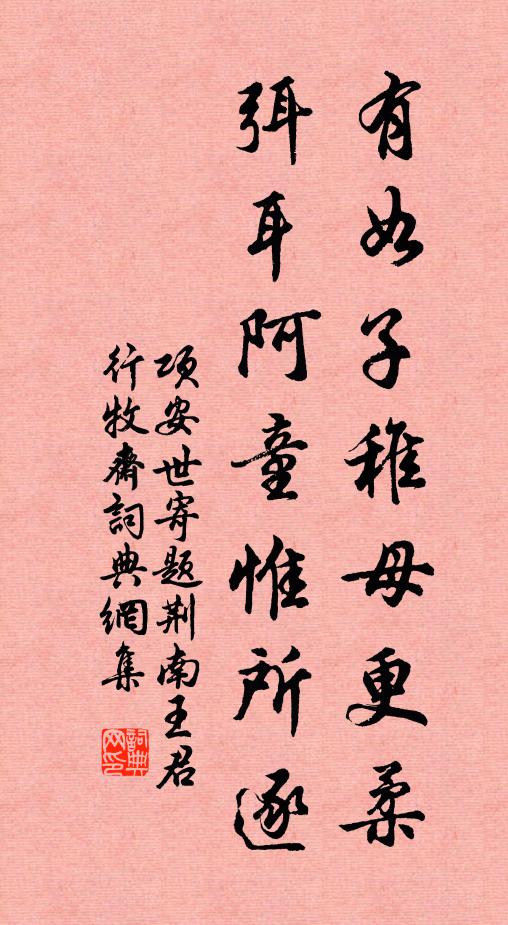 有如子稚母更柔
弭耳阿童惟所逐
项安世寄题荆南王君
行牧齋詞典網集
詞典网印